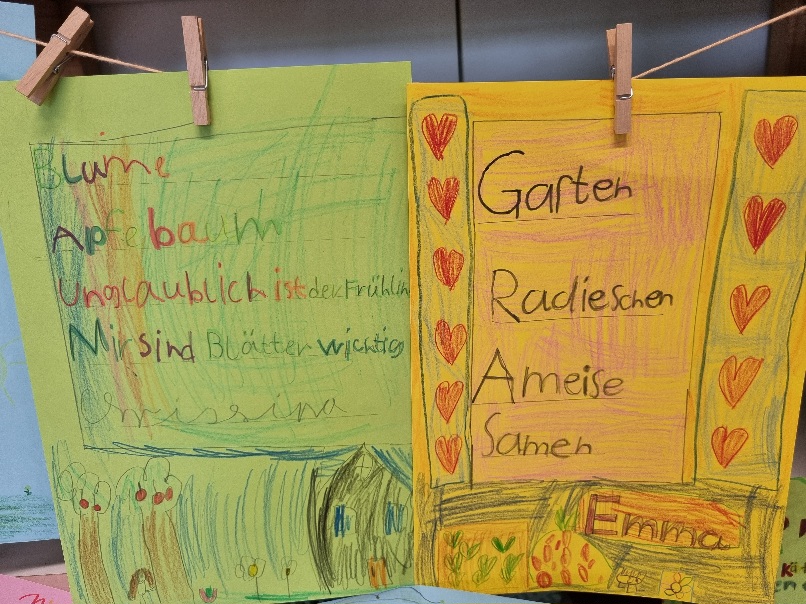 Blume
Apfelbaum
Unglaublich ist der Frühlin
Mir sind Blätter wichtig
Garten
Radieschen
Ameise
Samen
Emma